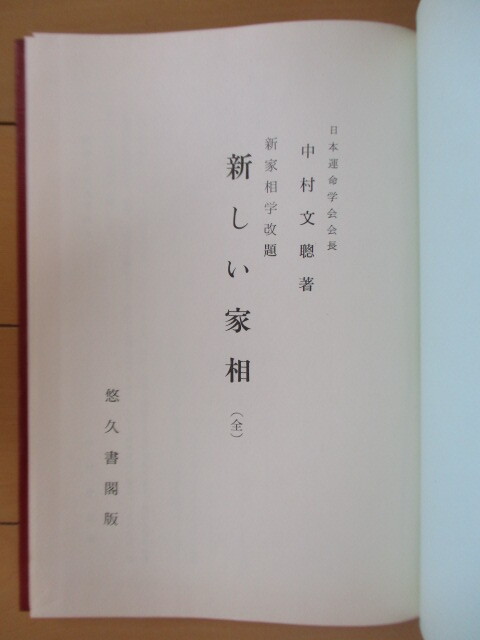 日本運命学会会長
中村文聰著
新家相学改題
新しい家相(全)
悠久書閣版